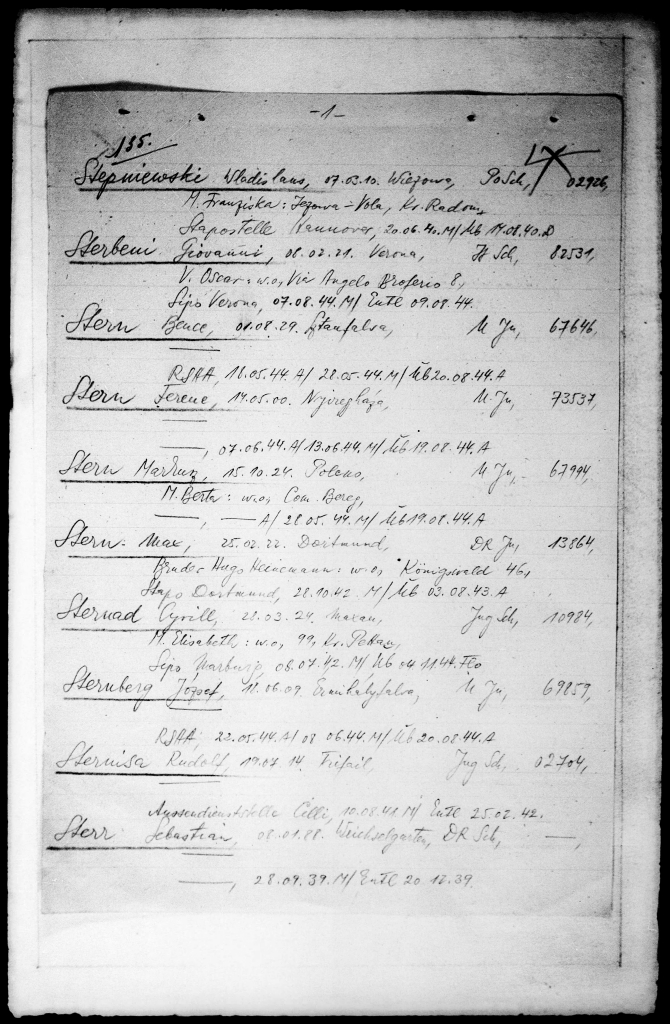 -1-
135.
Stepniewski Wladislaus, 07.03.10. Po Sch, 02926,
M. Franziska: Jezowa-Vola, Kr. Radom,
Stapostelle Hannover, 20.06.40.M/Üb 17.08.40.D
Sterbeni Giovanni, 08.02.21. Verona, It Sch, 82531,
V. Oscar: w.o, Via Angelo Broferio 8,
Sipo Verona, 07.08.44.M/Entl 09.08.44.
Stern Bence, 01.08.29. U Ju, 67646,
RSHA, 16.05.44.A/28.05.44.M/Üb 20.08.44.A
Stern Ferenc, 14.05.00. Nyiregyhaza, U Ju, 73537,
—, 07.06.44.A/13.06.44.M/Üb 19.08.44.A
Stern Markus, 15.10.24. U Ju, 67994,
M. Berta: w.o, Com. Bereg,
—, —A/28.05.44.M/Üb 19.08.44.A
Stern Max, 25.02.22. Dortmund, DR Ju, 13864,
Bruder Hugo Heinemann: w.o, Königswald 46,
Stapo Dortmund, 28.10.42.M/Üb 03.08.43.A
Sternad Cyrill, 28.03.24. Jug Sch, 10984,
M. Elisabeth: w.o, 99, Kr. Pettau,
Sipo Marburg, 08.07.42.M/Üb 04.11.44.Flo
Sternberg József, 11.06.09. Ermihalyfalva, U Ju, 69859,
RSHA, 22.05.44.A/08.06.44.M/Üb 20.08.44.A
Sternisa Rudolf, 19.07.14. Trifail, Jug Sch, 02704,
Aussendienststelle Cilli, 10.08.41.M/Entl 25.02.42.
Sterr Sebastian, 08.01.88. Weichselgarten, DR Sch, —,
—, 28.09.39.M/Entl 20.12.39.